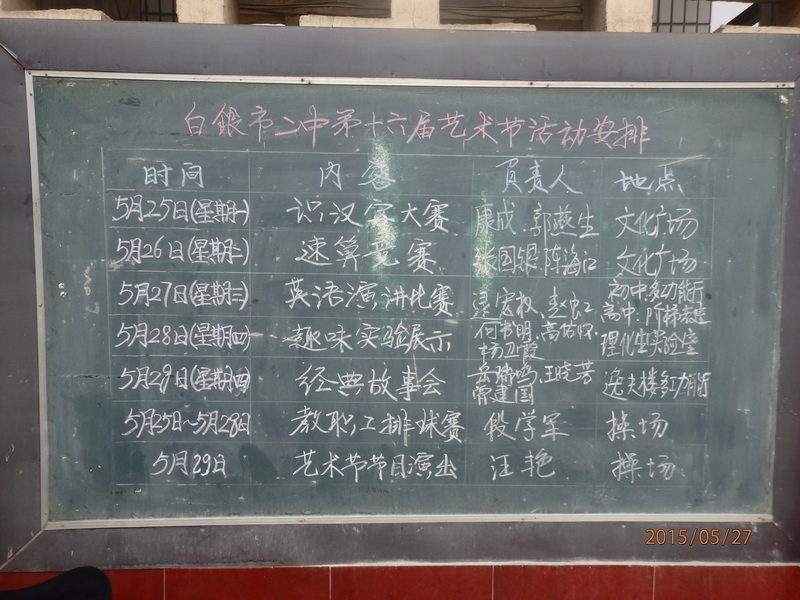 白銀市二中第十六届艺术节活动安排
时间 内容 负责人 地点
5月25日(星期一) 识汉字大赛 康成、郭燕生 文化广场
5月26日(星期二) 速算竞赛 张国银 陈海江 文化广场
5月27日(星期三) 英语演讲比赛 宏权、赵虹 初中:多功能厅
高中:阶梯教室
5月28日(星期四) 趣味实验展示 何书明、高佑怀、 理化生实验室
杨卫霞
5月29日(星期四) 经典故事会 王晓芳 逸夫楼多功能厅
常建国
5月25日~5月28日 教职工排球赛 段学军 操场
5月29日 艺术节节目演出 汪艳 操场
2015/05/27